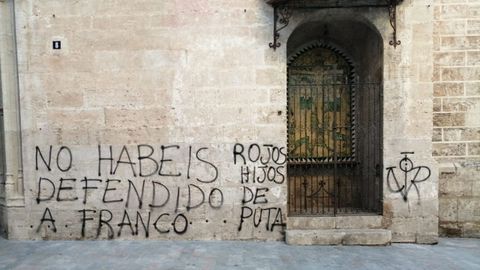 NO HABEIS
DEFENDIDO
A FRANCO
ROJOS
HIJOS
DE
PUTA